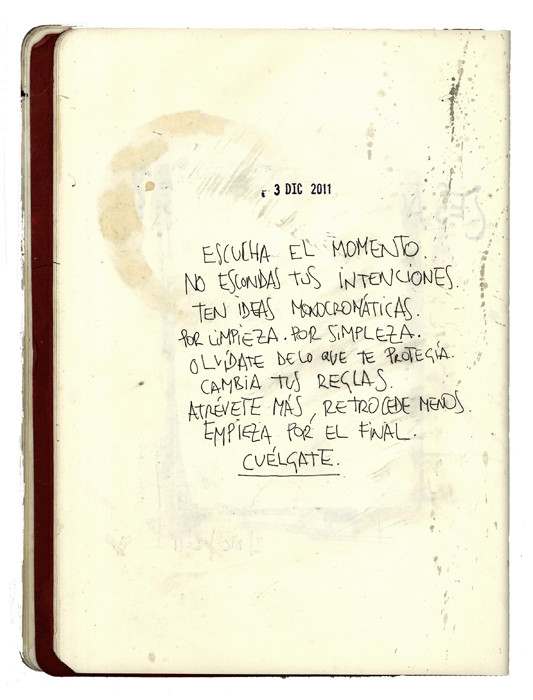 3 DIC 2011
ESCUCHA EL MOMENTO.
NO ESCONDAS TUS INTENCIONES.
TEN IDEAS MONOCROMÁTICAS.
POR LIMPIEZA. POR SIMPLEZA.
OLVÍDATE DE LO QUE TE PROTEGÍA.
CAMBIA TUS REGLAS.
ATRÉVETE MÁS, RETROCEDE MENOS.
EMPIEZA POR EL FINAL.
CUÉLGATE.